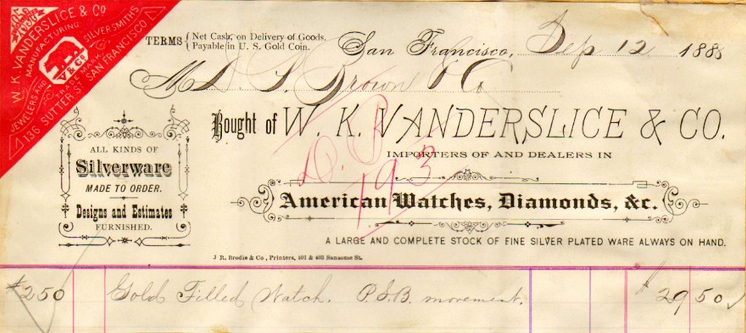 W. K. VANDERSLICE & CO.
MANUFACTURING
JEWELERS AND SILVERSMITHS
136 SUTTER ST. SAN FRANCISCO
V & CO
TERMS { Net Cash, on Delivery of Goods.
Payable in U. S. Gold Coin.
San Francisco, Sep 12 1888
M D. S. Brown & Co
Bought of W. K. VANDERSLICE & CO.
IMPORTERS OF AND DEALERS IN
American Watches, Diamonds, &c.
A LARGE AND COMPLETE STOCK OF FINE SILVER PLATED WARE ALWAYS ON HAND.
ALL KINDS OF
Silverware
MADE TO ORDER.
Designs and Estimates
FURNISHED.
193
J. R. Brodie & Co., Printers, 401 & 403 Sansome St.
#250 Gold Filled Watch. P.S.B. movement. $29 50